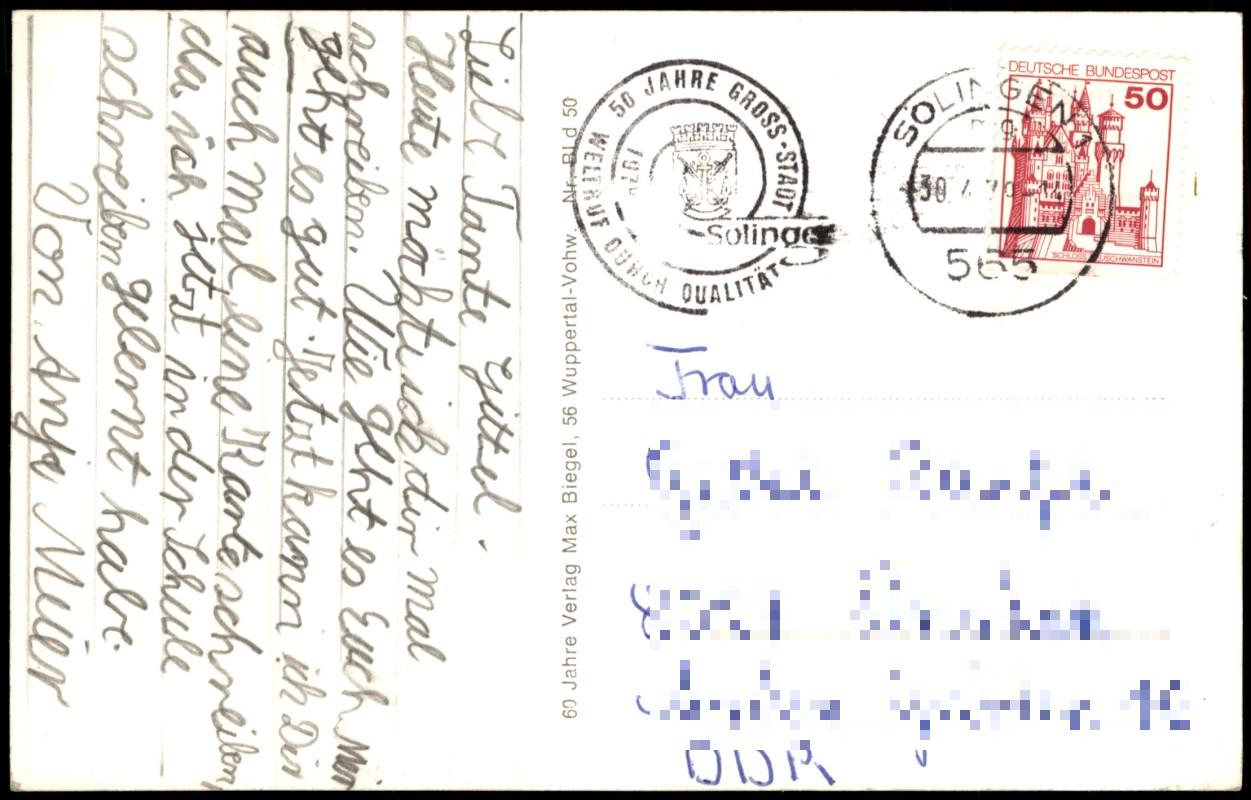 Liebe Tante Gittel.
Heute möchte ich dir mal
schreiben. Wie geht es Euch. Mir
geht es gut. Jetzt kann ich Dir
auch mal eine Karte schreiben,
da ich jetzt in der Schule
schreiben gelernt habe.
Von Anja Meier
60 Jahre Verlag Max Biegel, 56 Wuppertal-Vohw. Nr. Bld 50
50 JAHRE GROSS-STADT
WELTRUF DURCH QUALITÄT
Solingen
SOLINGEN 1
30.4.79-14
565
DEUTSCHE BUNDESPOST
50
SCHLOSS NEUSCHWANSTEIN
Frau
DDR